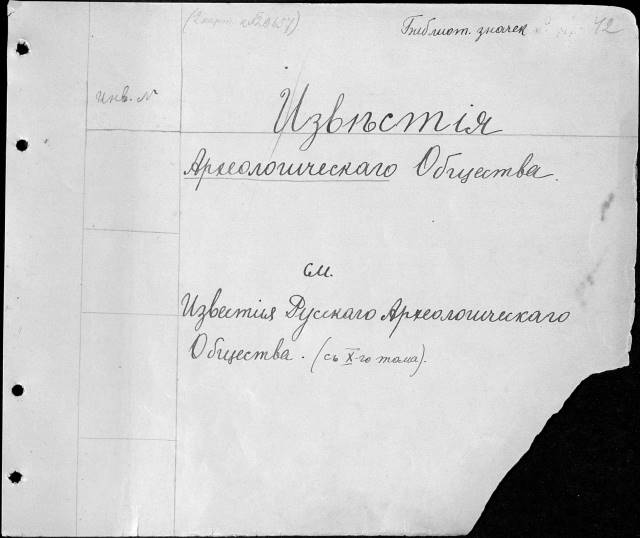 Библиот. значек 42
инв. №
Извѣстія
Археологическаго Общества.
см.
Известія Русскаго Археологическаго
Общества. (съ X-го тома).